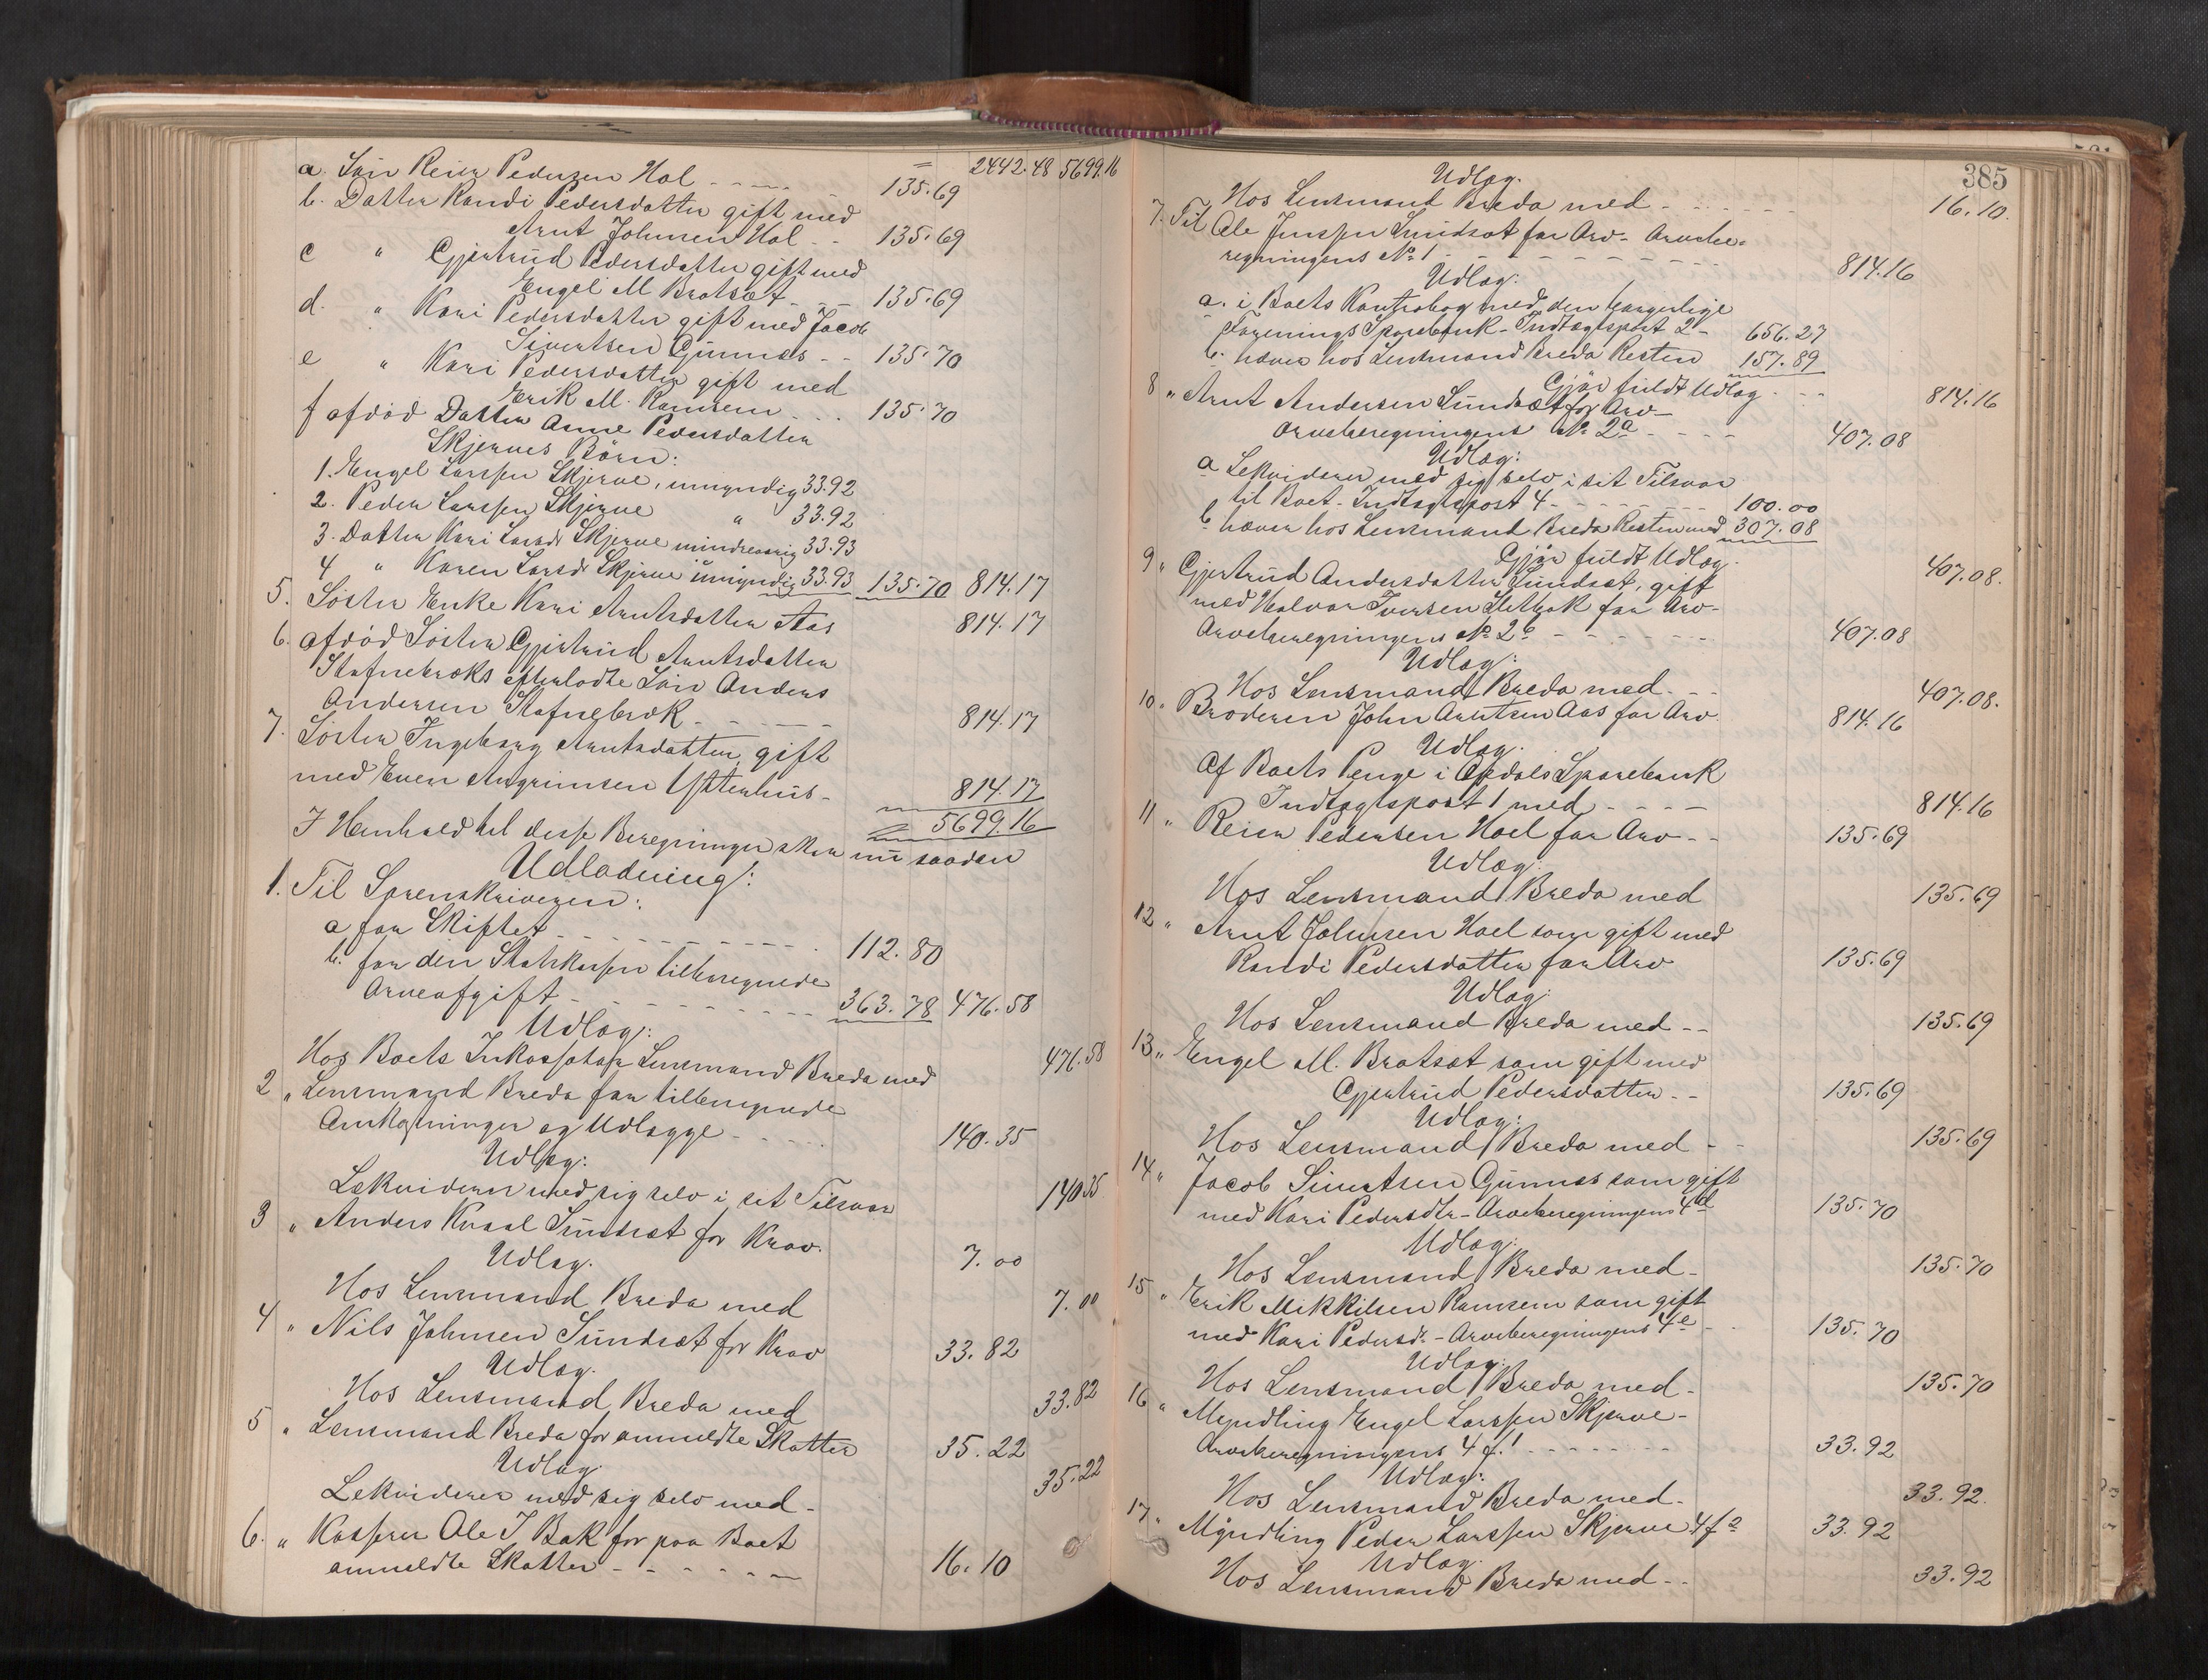 = 2442.48 5699.16
a. Søn Reier Pedersen Hol - - - - 135.69
b. Datter Randi Pedersdatter gift med
Arnt Johnsen Hol - - 135.69
c " Gjertrud Pedersdatter gift med
Engel M Bratsæt - - - 135.69
d. " Kari Pedersdatter gift med Jacob
Sivertsen Gunnes - - 135.70
e " Kari Pedersdatter gift med
Erik M. Ramsem - - - 135.70
f afdød Datter Anne Pedersdatter
Skjerves Børn:
1. Engel Larssen Skjerve, umyndig 33.92
2. Peder Larssen Skjerve " 33.92
3. Datter Kari Larsdr Skjerve mindreaarig 33.93
4 " Karen Larsdr Skjerve umyndig 33.93 135.70 814.17
5. Søster Enke Kari Arntsdatter Aas 814.17
6. afdød Søster Gjertrud Arntsdatter
Stafnebræks efterladte Søn Anders
Andersen Stafnebræk - - - - - 814.17
7. Søster Ingeborg Arntsdatter, gift
med Even Angrimsen Ystenhus - 814.17
= 5699.16
I Henhold til disse Beregninger sker nu saadan
Udlodning:
1. Til Sorenskriveren:
a for Skiftet - - - - - - - - - - 112.80
b. for den Statskassen tilberegnede
Arveafgift - - - - - - - - - 363.78 476.58
Udlæg:
Hos Boets Inkassator Lensmand Breda med 476.58
2 " Lensmand Breda for tilberegnede
Omkostninger og Udlægge - - - - - 140.35
Udlæg:
Lekviderer med sig selv i sit Tilsvar 140.35
3 " Anders Knaal Sundsæt for Krav. 7.00
Udlæg.
Hos Lensmand Breda med 7.00
4 " Nils Johnsen Sundsæt for Krav 33.82
Udlæg.
Hos Lensmand Breda med 33.82
5 " Lensmand Breda for anmeldte Skatter 35.22
Udlæg.
Lekviderer med sig selv med - 35.22
6. " Kasserer Ole J Bak for paa Boet
anmeldte Skatter - - - - - - 16.10
385
Udlæg.
Hos Lensmand Breda med - - - - - - 16.10.
7. Til Ole Jenssen Sundsæt for Arv - Arvebe-
regningens No 1 - - - - - - - - - 814.16
Udlæg:
a. i Boets Kontrabog med den borgerlige
Forenings Sparebank - Indtægtspost 2 - 656.27
b. hæver hos Lensmand Breda Resten 157.89
Gjør fuldt Udlæg - - - 814.16
8 " Arnt Andersen Sundsæt for Arv -
Arveberegningens No 2a - - - - 407.08
Udlæg:
a Lekviderer med sig selv i sit Tilsvar
til Boet - Indtægtspost 4 - - - - - - - 100.00
b hæver hos Lensmand Breda Resten med 307.08
Gjør fuldt Udlæg. 407.08.
9 " Gjertrud Andersdatter Sundsæt, gift
med Halvor Iversen Sletbak for Arv -
Arveberegningens No 2b - - - - - - - 407.08
Udlæg:
Hos Lensmand Breda med - - - 407.08.
10 " Broderen John Arntsen Aas for Arv. 814.16
Udlæg:
Af Boets Penge i Opdals Sparebank
Indtægtspost 1 med - - - - 814.16
11 " Reier Pedersen Hoel for Arv - - 135.69
Udlæg:
Hos Lensmand Breda med 135.69
12 " Arnt Johnsen Hoel som gift med
Randi Pedersdatter for Arv 135.69
Udlæg:
Hos Lensmand Breda med - - 135.69
13 " Engel M. Bratsæt som gift med
Gjertrud Pedersdatter - - 135.69
Udlæg:
Hos Lensmand Breda med - - 135.69
14 " Jacob Sivertsen Gunnes som gift
med Kari Pedersdtr - Arveberegningens 4d 135.70
Udlæg:
Hos Lensmand Breda med - 135.70
15 " Erik Mikkelsen Ramsem som gift
med Kari Pedersdr. - Arveberegningens 4e - - 135.70
Udlæg:
Hos Lensmand Breda med - 135.70
16 " Myndling Engel Larssen Skjerve -
Arveberegningens 4 f.1 - - - - - - - 33.92
Udlæg:
Hos Lensmand Breda med - 33.92.
17 " Myndling Peder Larssen Skjerve 4f 2 33.92
Udlæg.
Hos Lensmand Breda med - - 33.92